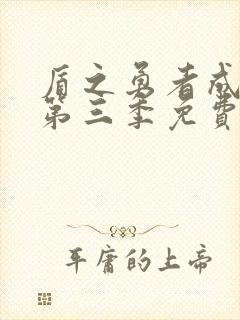 盾之勇者成
第三季免費
平庸的上帝